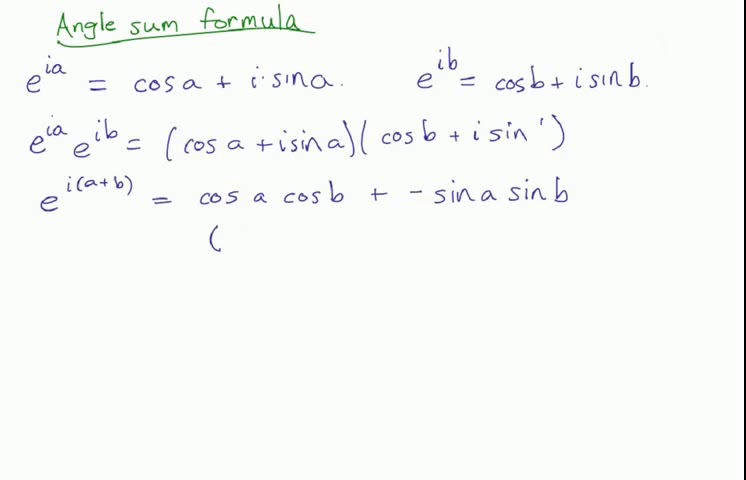 Angle sum formula
e^{ia} = cos a + i·sin a. e^{ib} = cos b + i sin b.
e^{ia} e^{ib} = (cos a + i sin a)(cos b + i sin ')
e^{i(a+b)} = cos a cos b + - sin a sin b
(